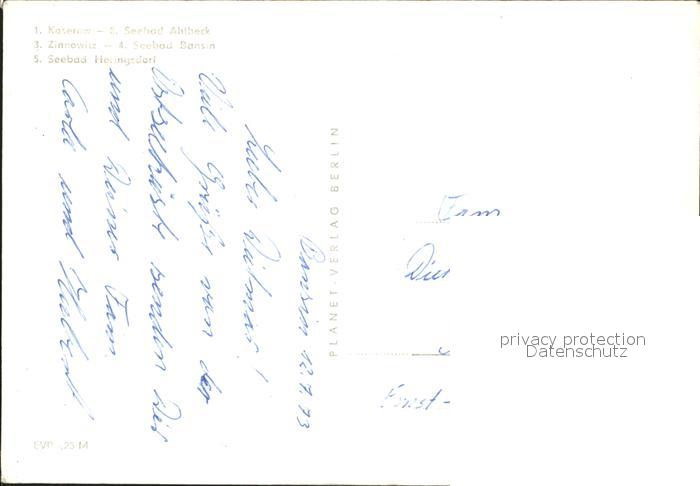 1. Koserow – 2. Seebad Ahlbeck
3. Zinnowitz – 4. Seebad Bansin
5. Seebad Heringsdorf
Bansin 12.7.73
Viele Grüße von der
Ostseeküste senden Dir
und Deiner Fam
und
PLANET-VERLAG BERLIN
Fam
Ernst-
privacy protection
Datenschutz
EVP -,25 M